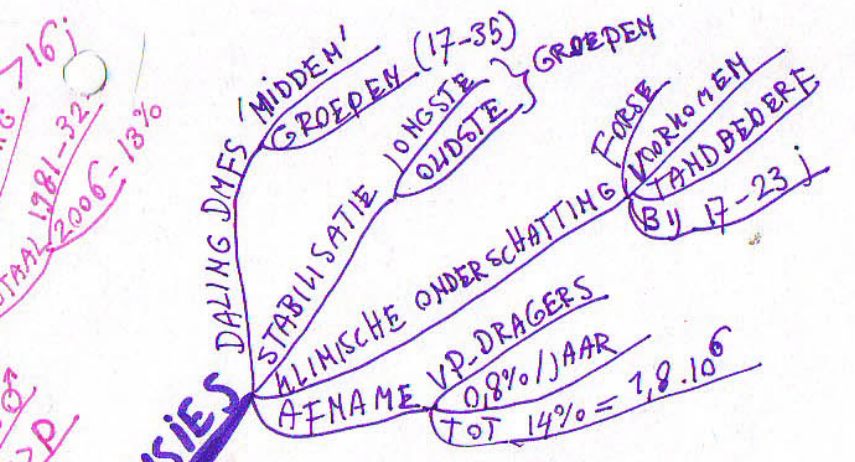 > 16 j
1981-32
2006-13%
TAAL
DALING DMFS
'MIDDEN'
GROEPEN (17-35)
STABILISATIE
JONGSTE
OUDSTE
GROEPEN
KLINISCHE ONDERSCHATTING
FORSE
VOORKOMEN
TANDBEDERF
BIJ 17-23 j
AFNAME
VP-DRAGERS
0,8%/JAAR
TOT 14% = 1,8.10⁶
SIES
♂↑
>P